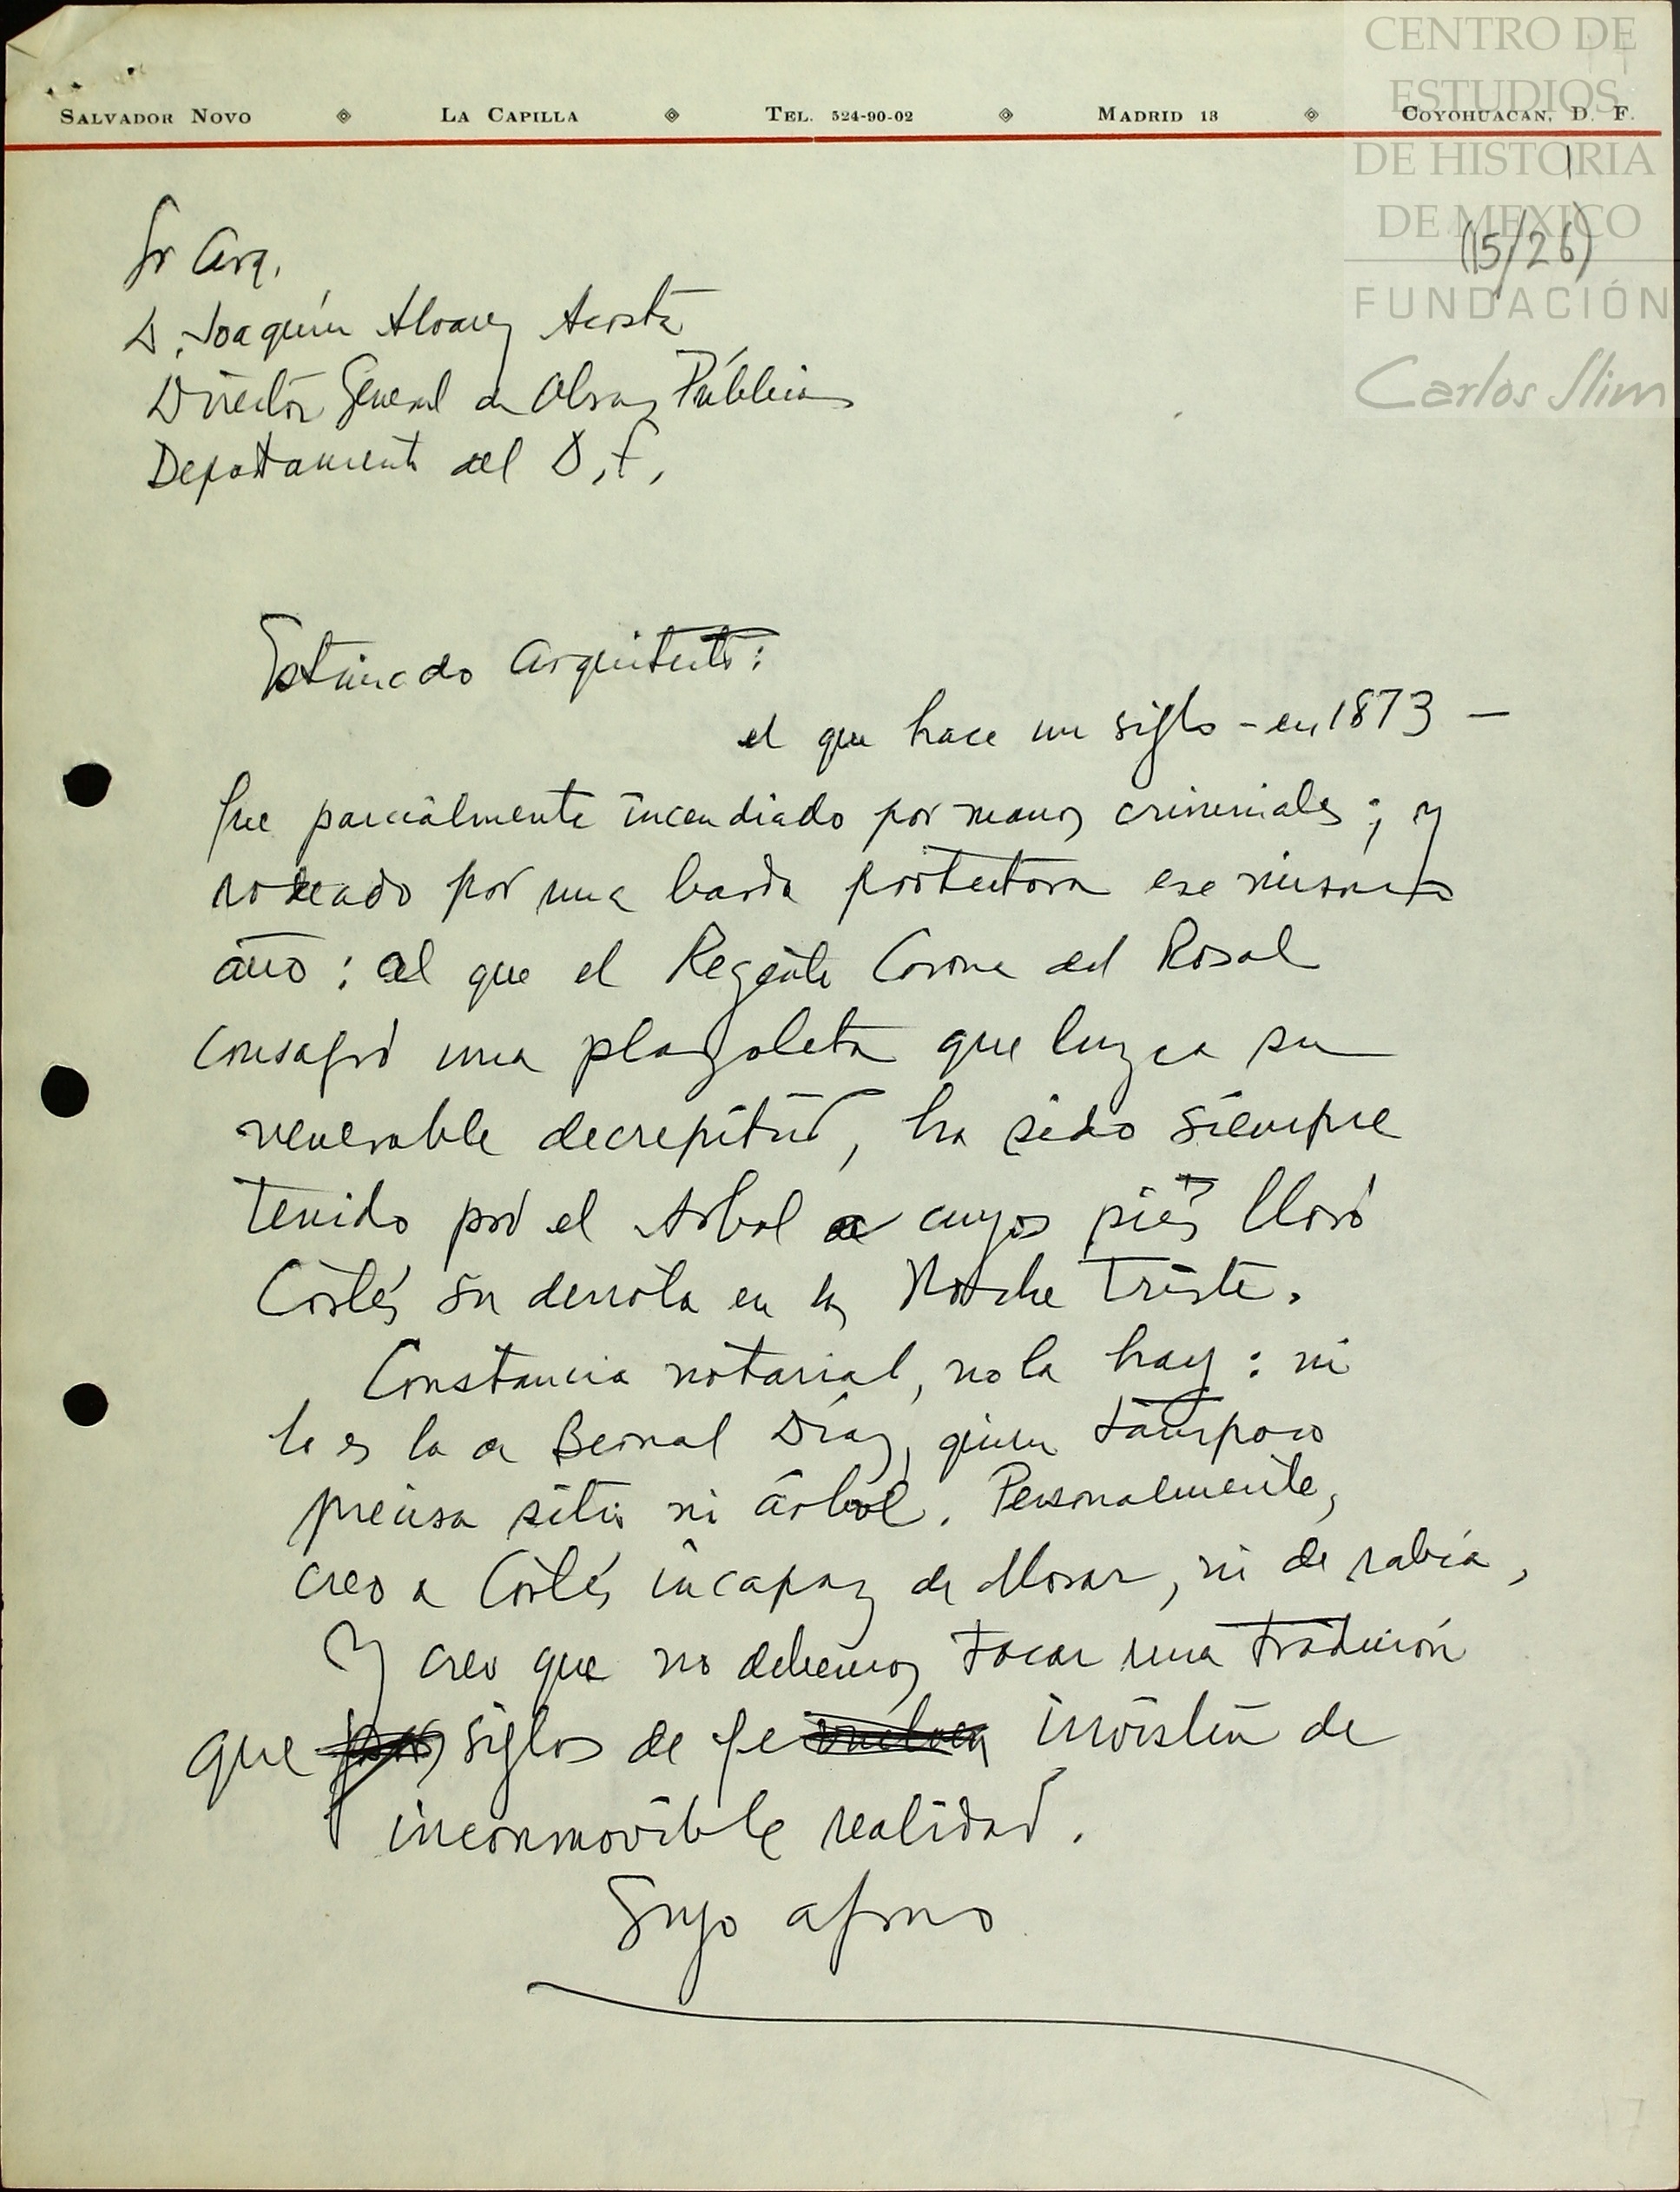 CENTRO DE
ESTUDIOS
DE HISTORIA
DE MEXICO
FUNDACIÓN
Carlos Slim
SALVADOR NOVO LA CAPILLA TEL. 524-90-02 MADRID 13 COYOHUACAN, D. F.
1
(15/26)
Sr Arq.
D. Joaquín Alvarez Acosta
Director General de Obras Públicas
Departamento del D.F.
Estimado arquitecto:
el que hace un siglo - en 1873 -
fue parcialmente incendiado por manos criminales; y
rodeado por una barda protectora ese mismo
año: al que el Regente Corona del Rosal
consagró una plazoleta que luzca su
venerable decrepitud, ha sido siempre
tenido por el Arbol a cuyos pies lloró
Cortés su derrota en la Noche Triste.
Constancia notarial, no la hay: ni
lo es la de Bernal Díaz, quien tampoco
precisa sitio ni árbol. Personalmente,
creo a Cortés incapaz de llorar, ni de rabia,
Y creo que no debemos tocar una tradición
que siglos de fe invisten de
inconmovible realidad.
Suyo afmo